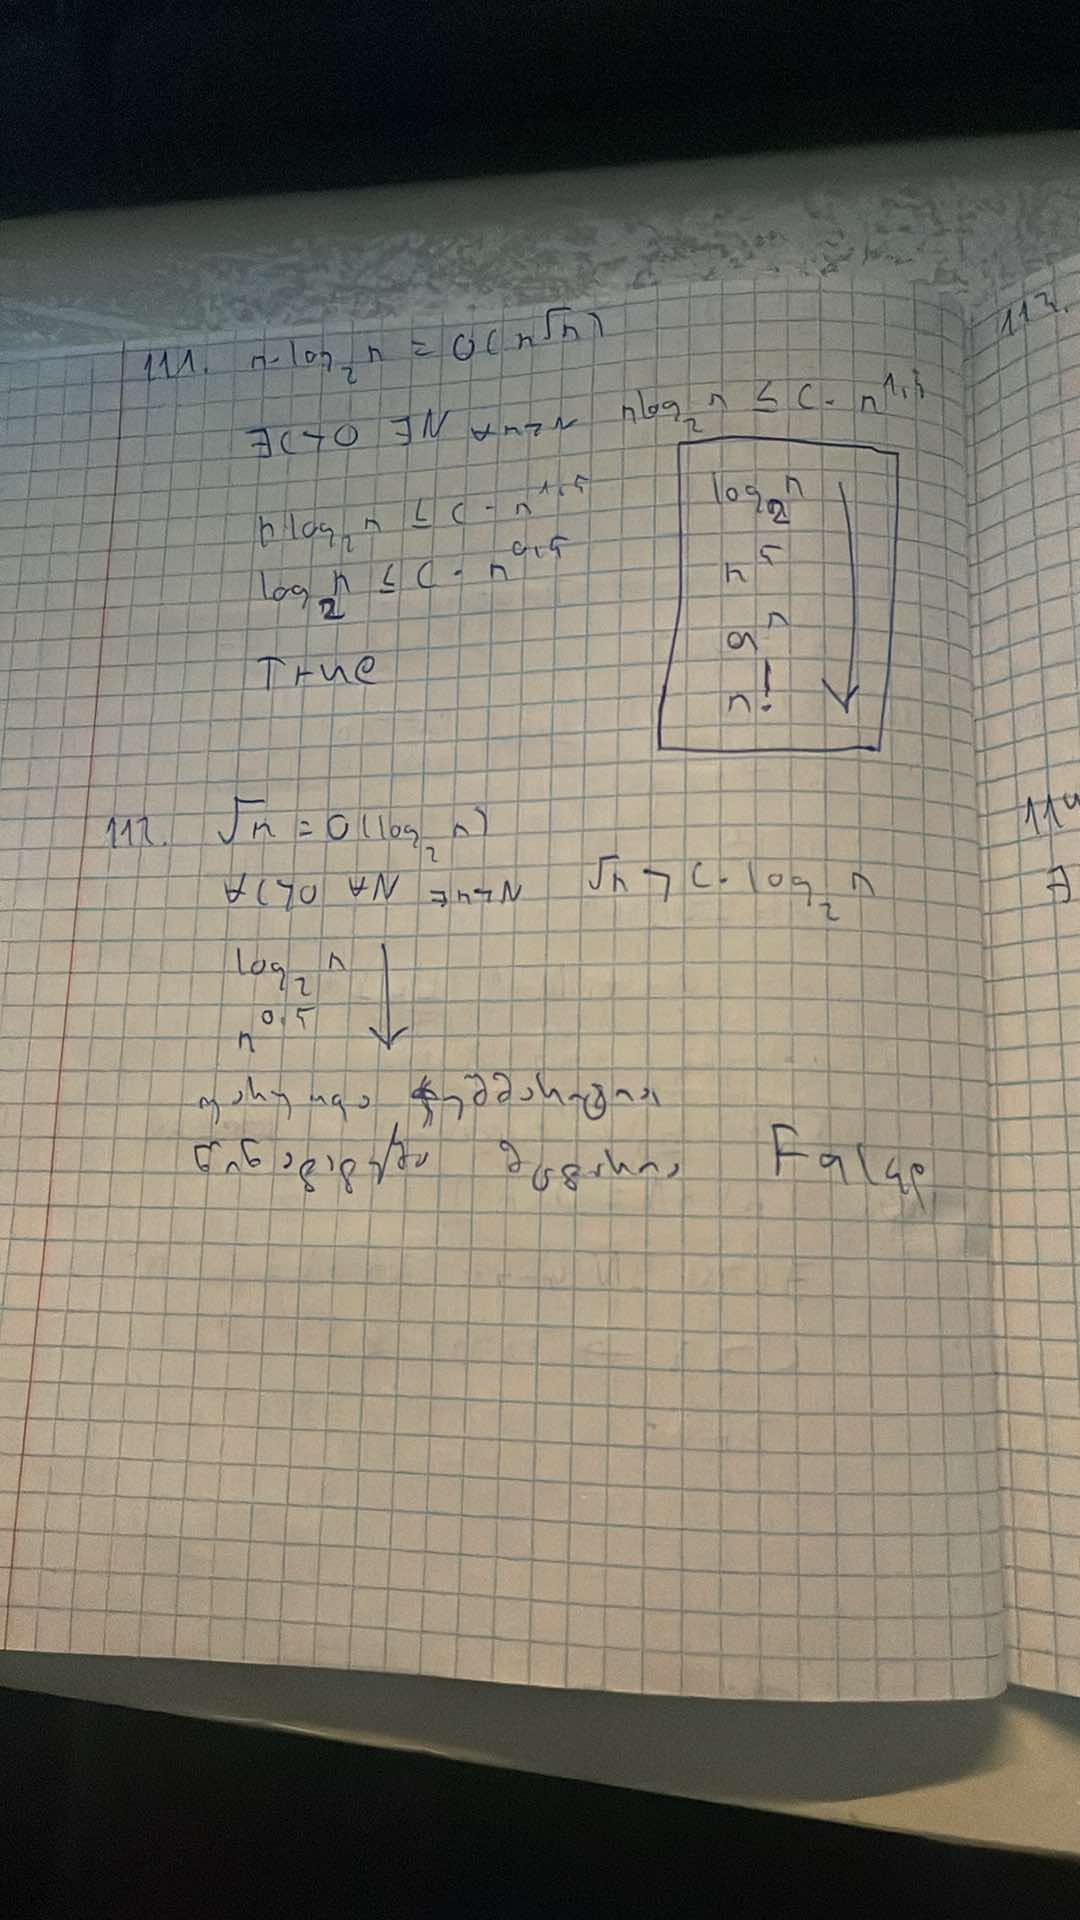 111. n·log₂n = O(n√n)
∃C>0 ∃N ∀n>N nlog₂n ≤ C·n^1,5
nlog₂n ≤ C·n^1,5
log₂n ≤ C·n^0,5
True
log₂n
n^5
a^n
n!
112. √n = O(log₂n)
∀C>0 ∀N ∃n>N √n > C·log₂n
log₂n
n^0,5
False
113.
114
∃